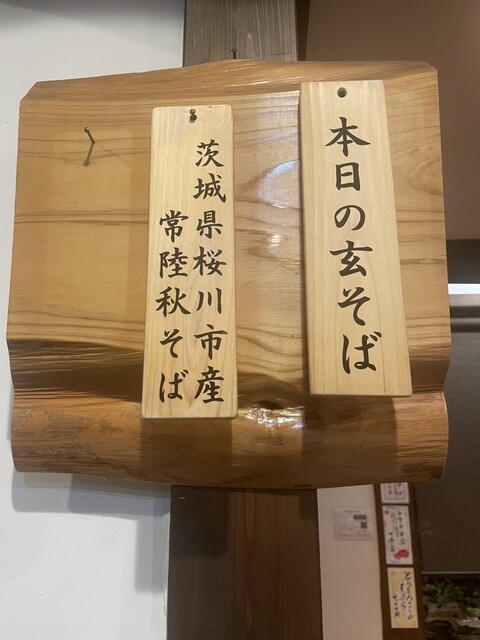 本日の玄そば
茨城県桜川市産
常陸秋そば